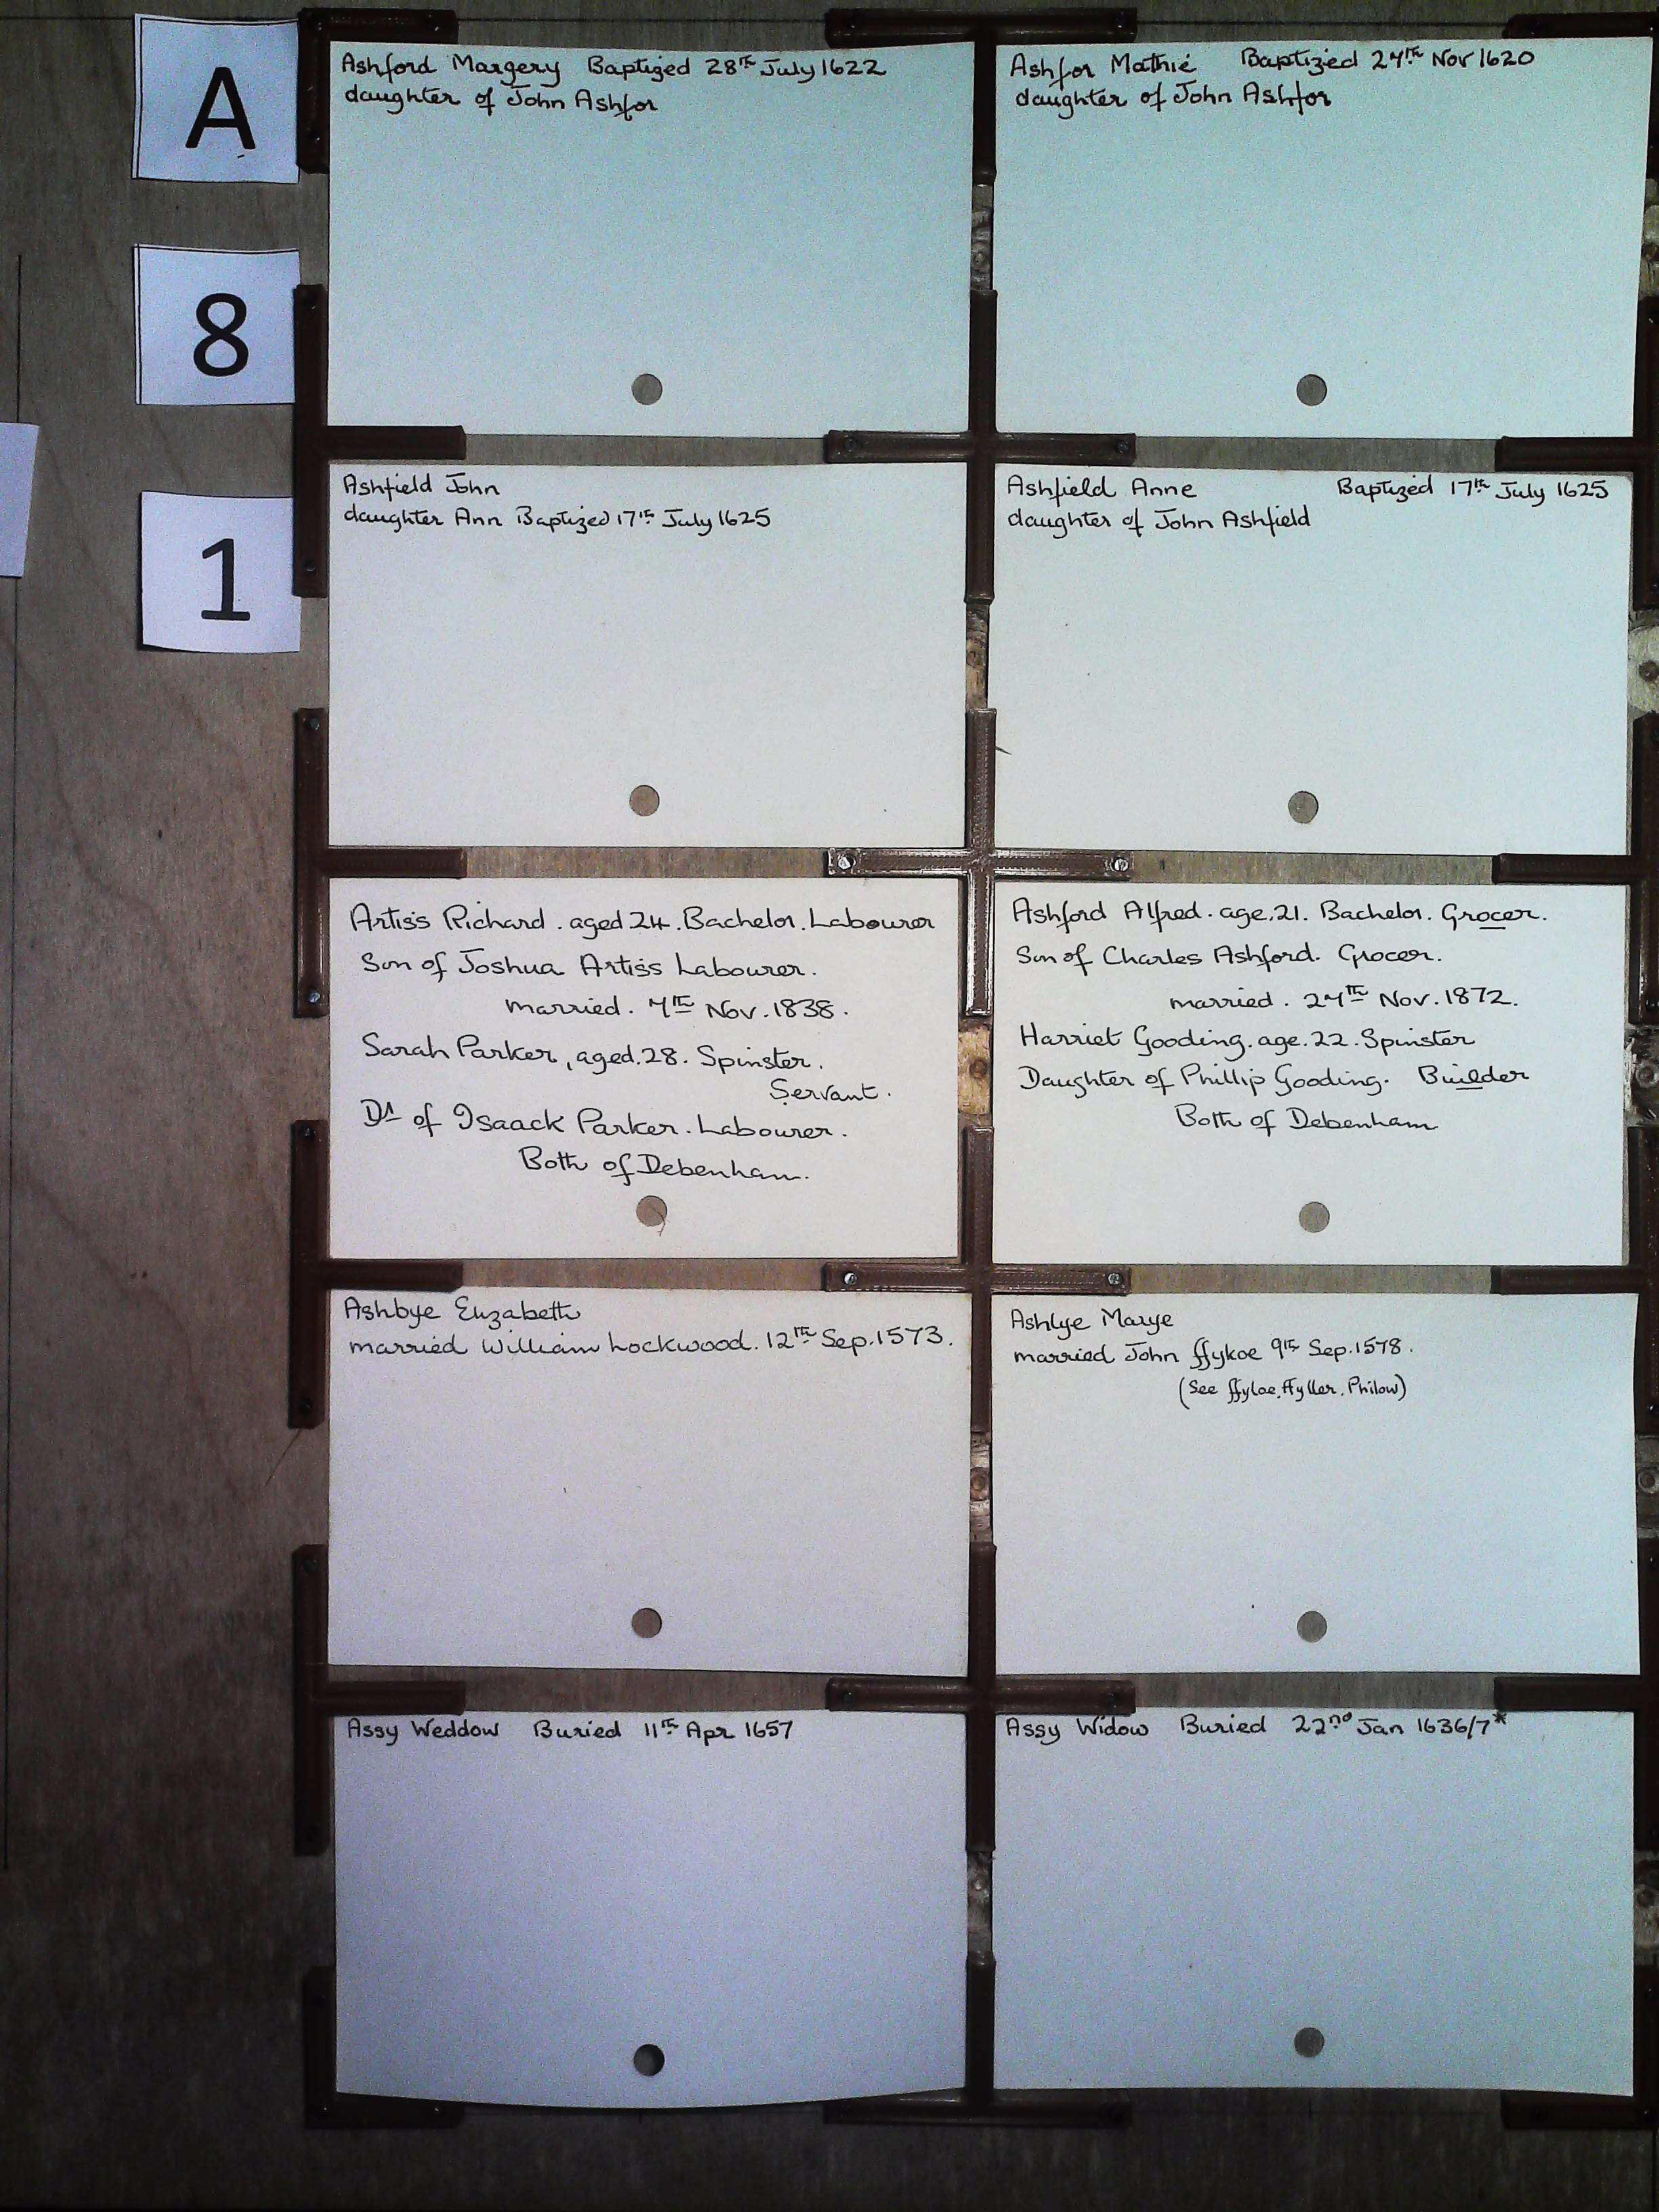 A
8
1
Ashford Margery Baptized 28th July 1622
daughter of John Ashfor
Ashfor Mathie Baptized 27th Nov 1620
daughter of John Ashfor
Ashfield John
daughter Ann Baptized 17th July 1625
Ashfield Anne Baptized 17th July 1625
daughter of John Ashfield
Artiss Richard. aged 24. Bachelor. Labourer
Son of Joshua Artiss Labourer.
married. 7th Nov. 1838.
Sarah Parker, aged. 28. Spinster.
Servant.
Dr of Isaack Parker. Labourer.
Both of Debenham.
Ashford Alfred. age. 21. Bachelor. Grocer.
Son of Charles Ashford. Grocer.
married. 27th Nov. 1872.
Harriet Gooding. age. 22. Spinster
Daughter of Phillip Gooding. Builder
Both of Debenham
Ashbye Elizabeth
married William Lockwood. 12th Sep. 1573.
Ashlye Marye
married John ffykoe 9th Sep. 1578.
(See ffyloe, ffyller, Philow)
Assy Weddow Buried 11th Apr 1657
Assy Widow Buried 22nd Jan 1636/7*